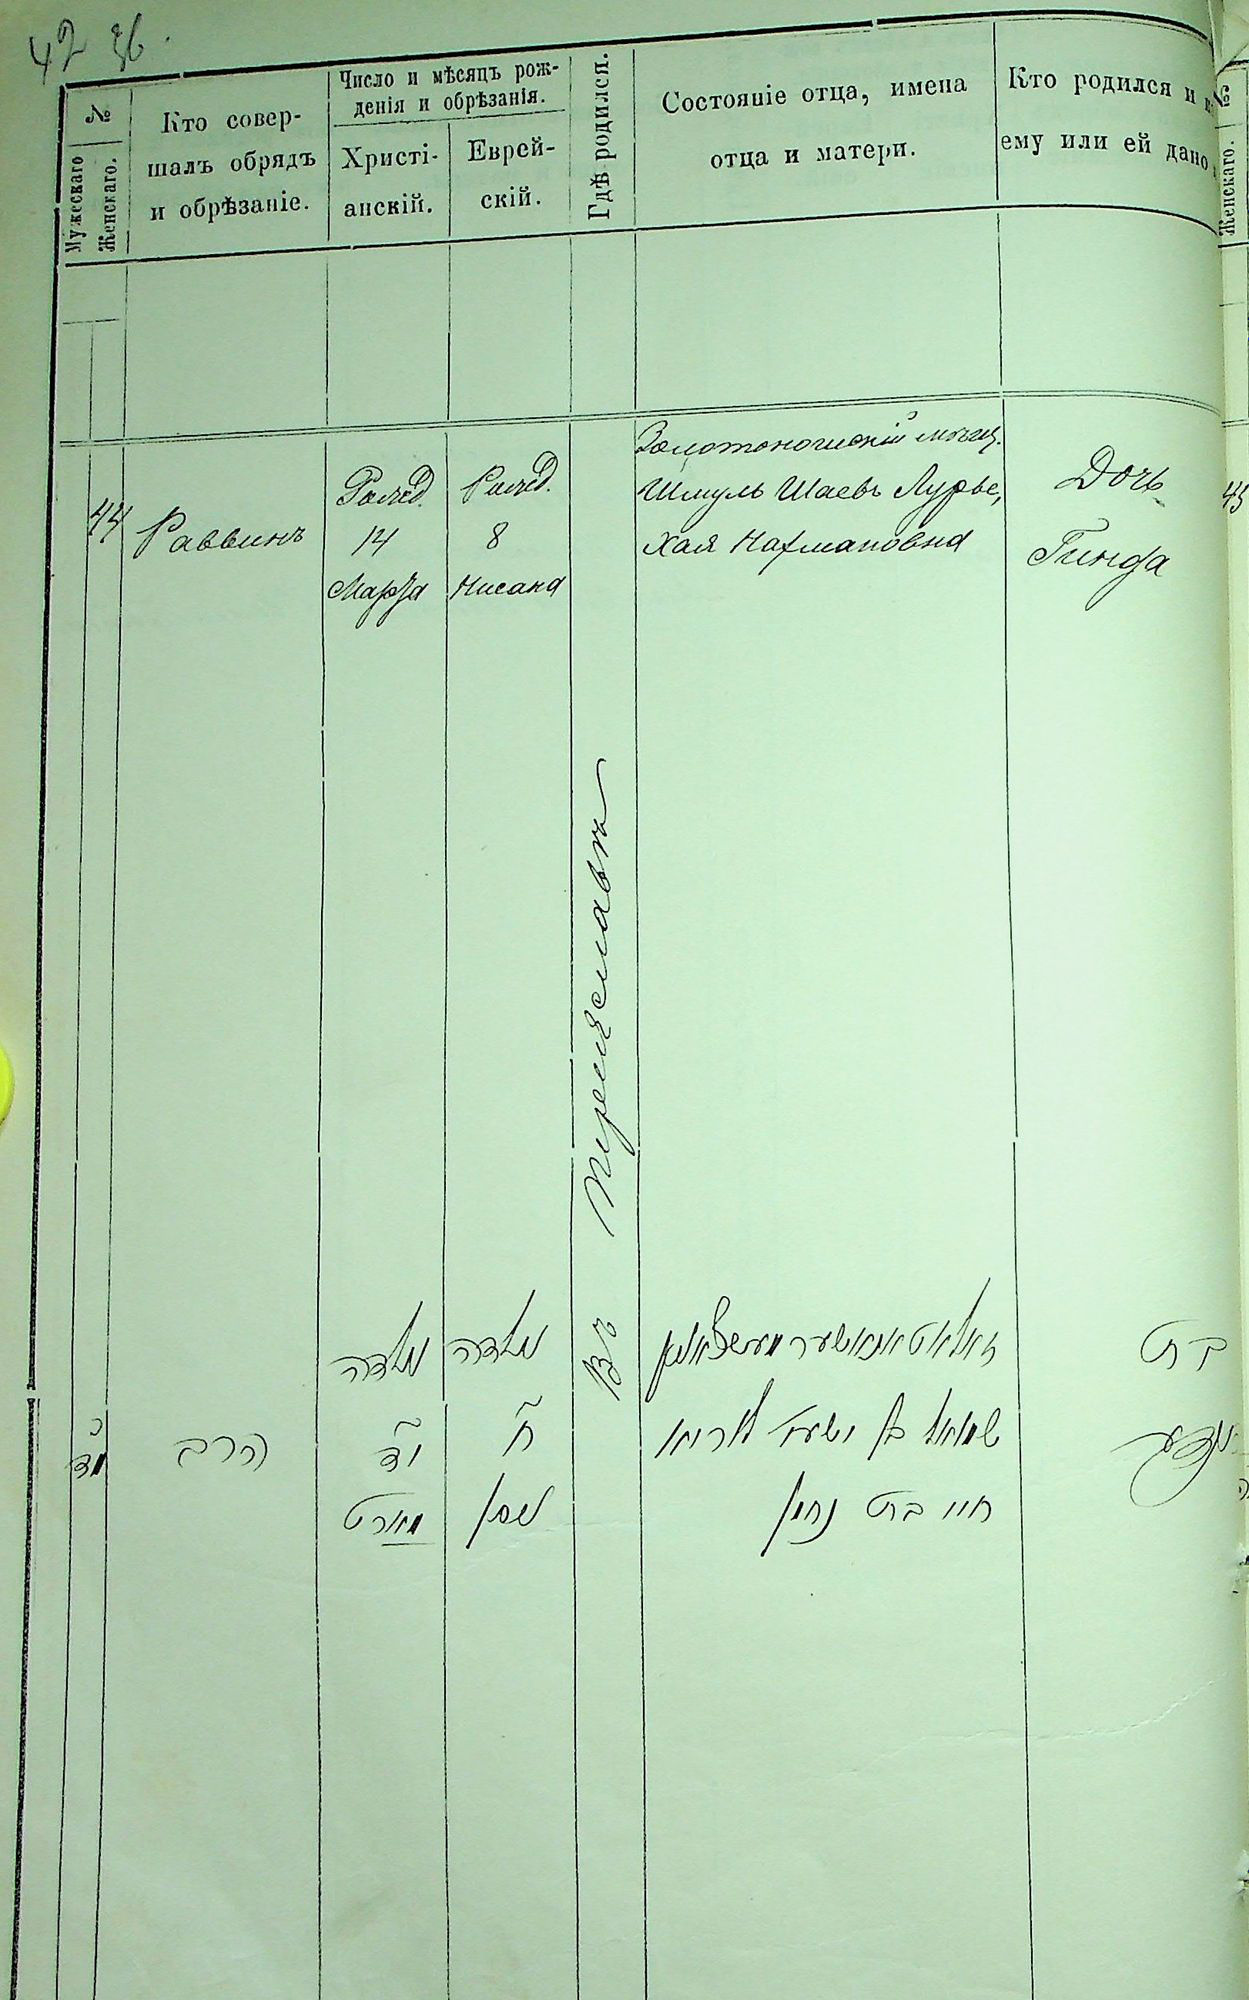 42 36.
№
Мужескаго
Женскаго.
Кто совер-
шалъ обрядъ
и обрѣзаніе.
Число и мѣсяцъ рож-
денія и обрѣзанія.
Христі-
анскій.
Еврей-
скій.
Гдѣ родился.
Состояніе отца, имена
отца и матери.
Кто родился и
ему или ей дано
№
Женскаго.
44
Раввинъ
Рожд.
14
Марта
Рожд.
8
Нисана
Въ Переяславѣ
Золотоношскій мѣщ.
Шмуль Шаевъ Лурье,
Хая Нахмановна
Дочь
Гинда
45
מד
הרב
נולדה
יד
מארט
נולדה
ח
ניסן
שמואל בן ישעי׳ לוריא
חיי׳ בת נחמן
בת